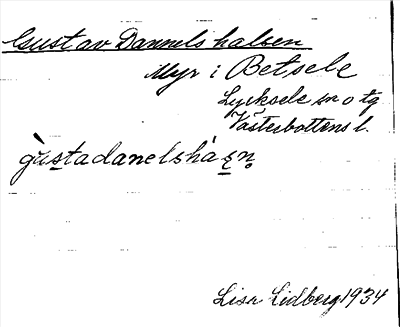 Gustav Dannelshalsen
Myr i Betsele
Lycksele sn o tg
Västerbottens l.
gùstadanelshàsṇ
Lisa Lidberg 1934